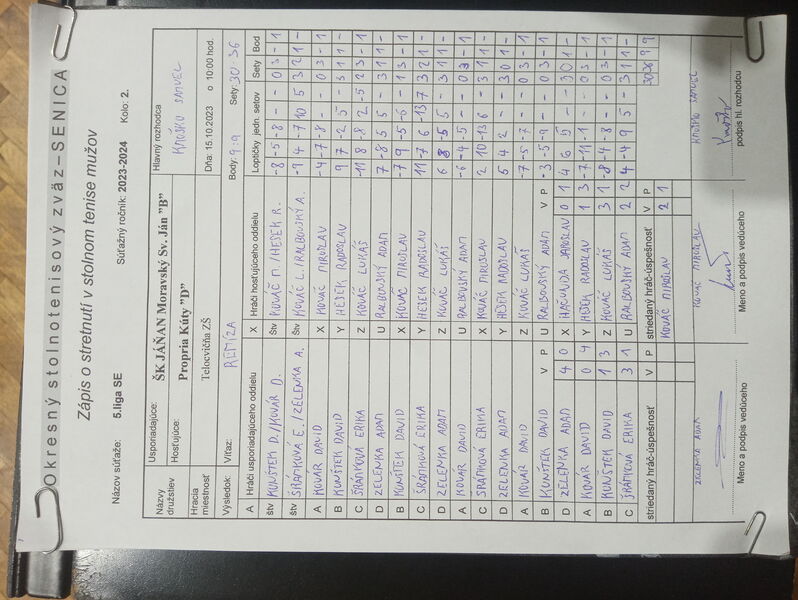 Okresný stolnotenisový zväz–SENICA
Zápis o stretnutí v stolnom tenise mužov
Názov súťaže: 5.liga SE Súťažný ročník: 2023-2024 Kolo: 2.
Názvy družstiev Usporiadajúce: ŠK JÁŇAN Moravský Sv. Ján "B" Hlavný rozhodca
Hosťujúce: Propria Kúty "D" KNOŠKO SAMUEL
Hracia miestnosť Telocvičňa ZŠ Dňa: 15.10.2023 o 10:00 hod.
Výsledok: Víťaz: REMÍZA Body: 9:9 Sety: 30:36
A Hráči usporiadajúceho oddielu X Hráči hosťujúceho oddielu Loptičky jedn. setov Sety Bod
štv KUNŠTEK D./KOVÁR D. štv KOVÁČ M./HESEK R. -8 -5 -8 - - 0 3 - 1
štv ŠRÁMKOVÁ E./ZELENKA A. štv KOVÁČ L./RALBOVSKÝ A. -9 4 -7 10 5 3 2 1 -
A KOVÁR DAVID X KOVÁČ MIROSLAV -4 -7 -8 - - 0 3 - 1
B KUNŠTEK DAVID Y HESEK RADOSLAV 9 7 -2 5 - 3 1 1 -
C ŠRÁMKOVÁ ERIKA Z KOVÁČ LUKÁŠ -11 8 -8 2 -5 2 3 - 1
D ZELENKA ADAM U RALBOVSKÝ ADAM 7 -8 5 5 - 3 1 1 -
B KUNŠTEK DAVID X KOVÁČ MIROSLAV -7 9 -5 -6 - 1 3 - 1
C ŠRÁMKOVÁ ERIKA Y HESEK RADOSLAV 11 -7 6 -13 7 3 2 1 -
D ZELENKA ADAM Z KOVÁČ LUKÁŠ 6 8 -5 5 - 3 1 1 -
A KOVÁR DAVID U RALBOVSKÝ ADAM -6 -4 -5 - - 0 3 - 1
C ŠRÁMKOVÁ ERIKA X KOVÁČ MIROSLAV 2 10 -13 6 - 3 1 1 -
D ZELENKA ADAM Y HESEK RADOSLAV 5 4 2 - - 3 0 1 -
A KOVÁR DAVID Z KOVÁČ LUKÁŠ -7 -5 -7 - - 0 3 - 1
B KUNŠTEK DAVID V P U RALBOVSKÝ ADAM V P -3 -5 -9 - - 0 3 - 1
D ZELENKA ADAM 4 0 X JAROSLAV 0 1 4 6 5 - - 3 0 1 -
A KOVÁR DAVID 0 4 Y HESEK RADOSLAV 1 3 -7 -11 -1 - - 0 3 - 1
B KUNŠTEK DAVID 1 3 Z KOVÁČ LUKÁŠ 3 1 -8 -4 -8 - - 0 3 - 1
C ŠRÁMKOVÁ ERIKA 3 1 U RALBOVSKÝ ADAM 2 2 4 -4 9 5 - 3 1 1 -
striedaný hráč-úspešnosť V P striedaný hráč-úspešnosť V P 30 36 9 9
KOVÁČ MIROSLAV 2 1
ZELENKA ADAM KOVÁČ MIROSLAV KNOŠKO SAMUEL
Meno a podpis vedúceho Meno a podpis vedúceho podpis hl. rozhodcu